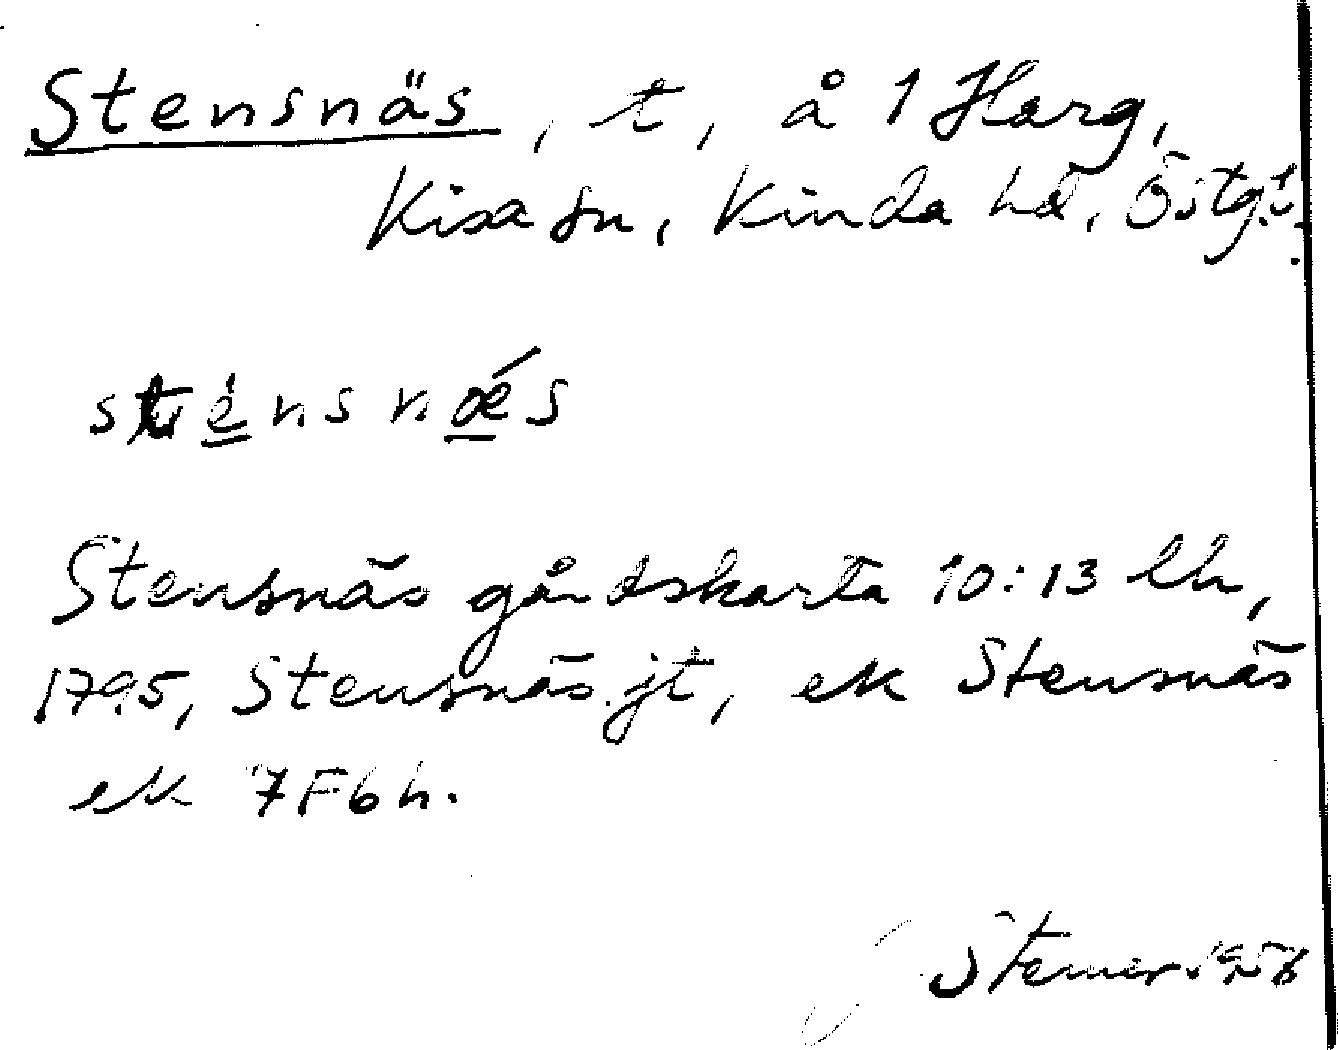 Stensnäs, t, å 1 Harg,
Kisa sn, Kinda hd, Östg.
sténs nǽs
Stensnäs gårdskarta 10:13 Lh,
1795, Stensnäs jt, ek Stensnäs
ek 7F6h.
1956